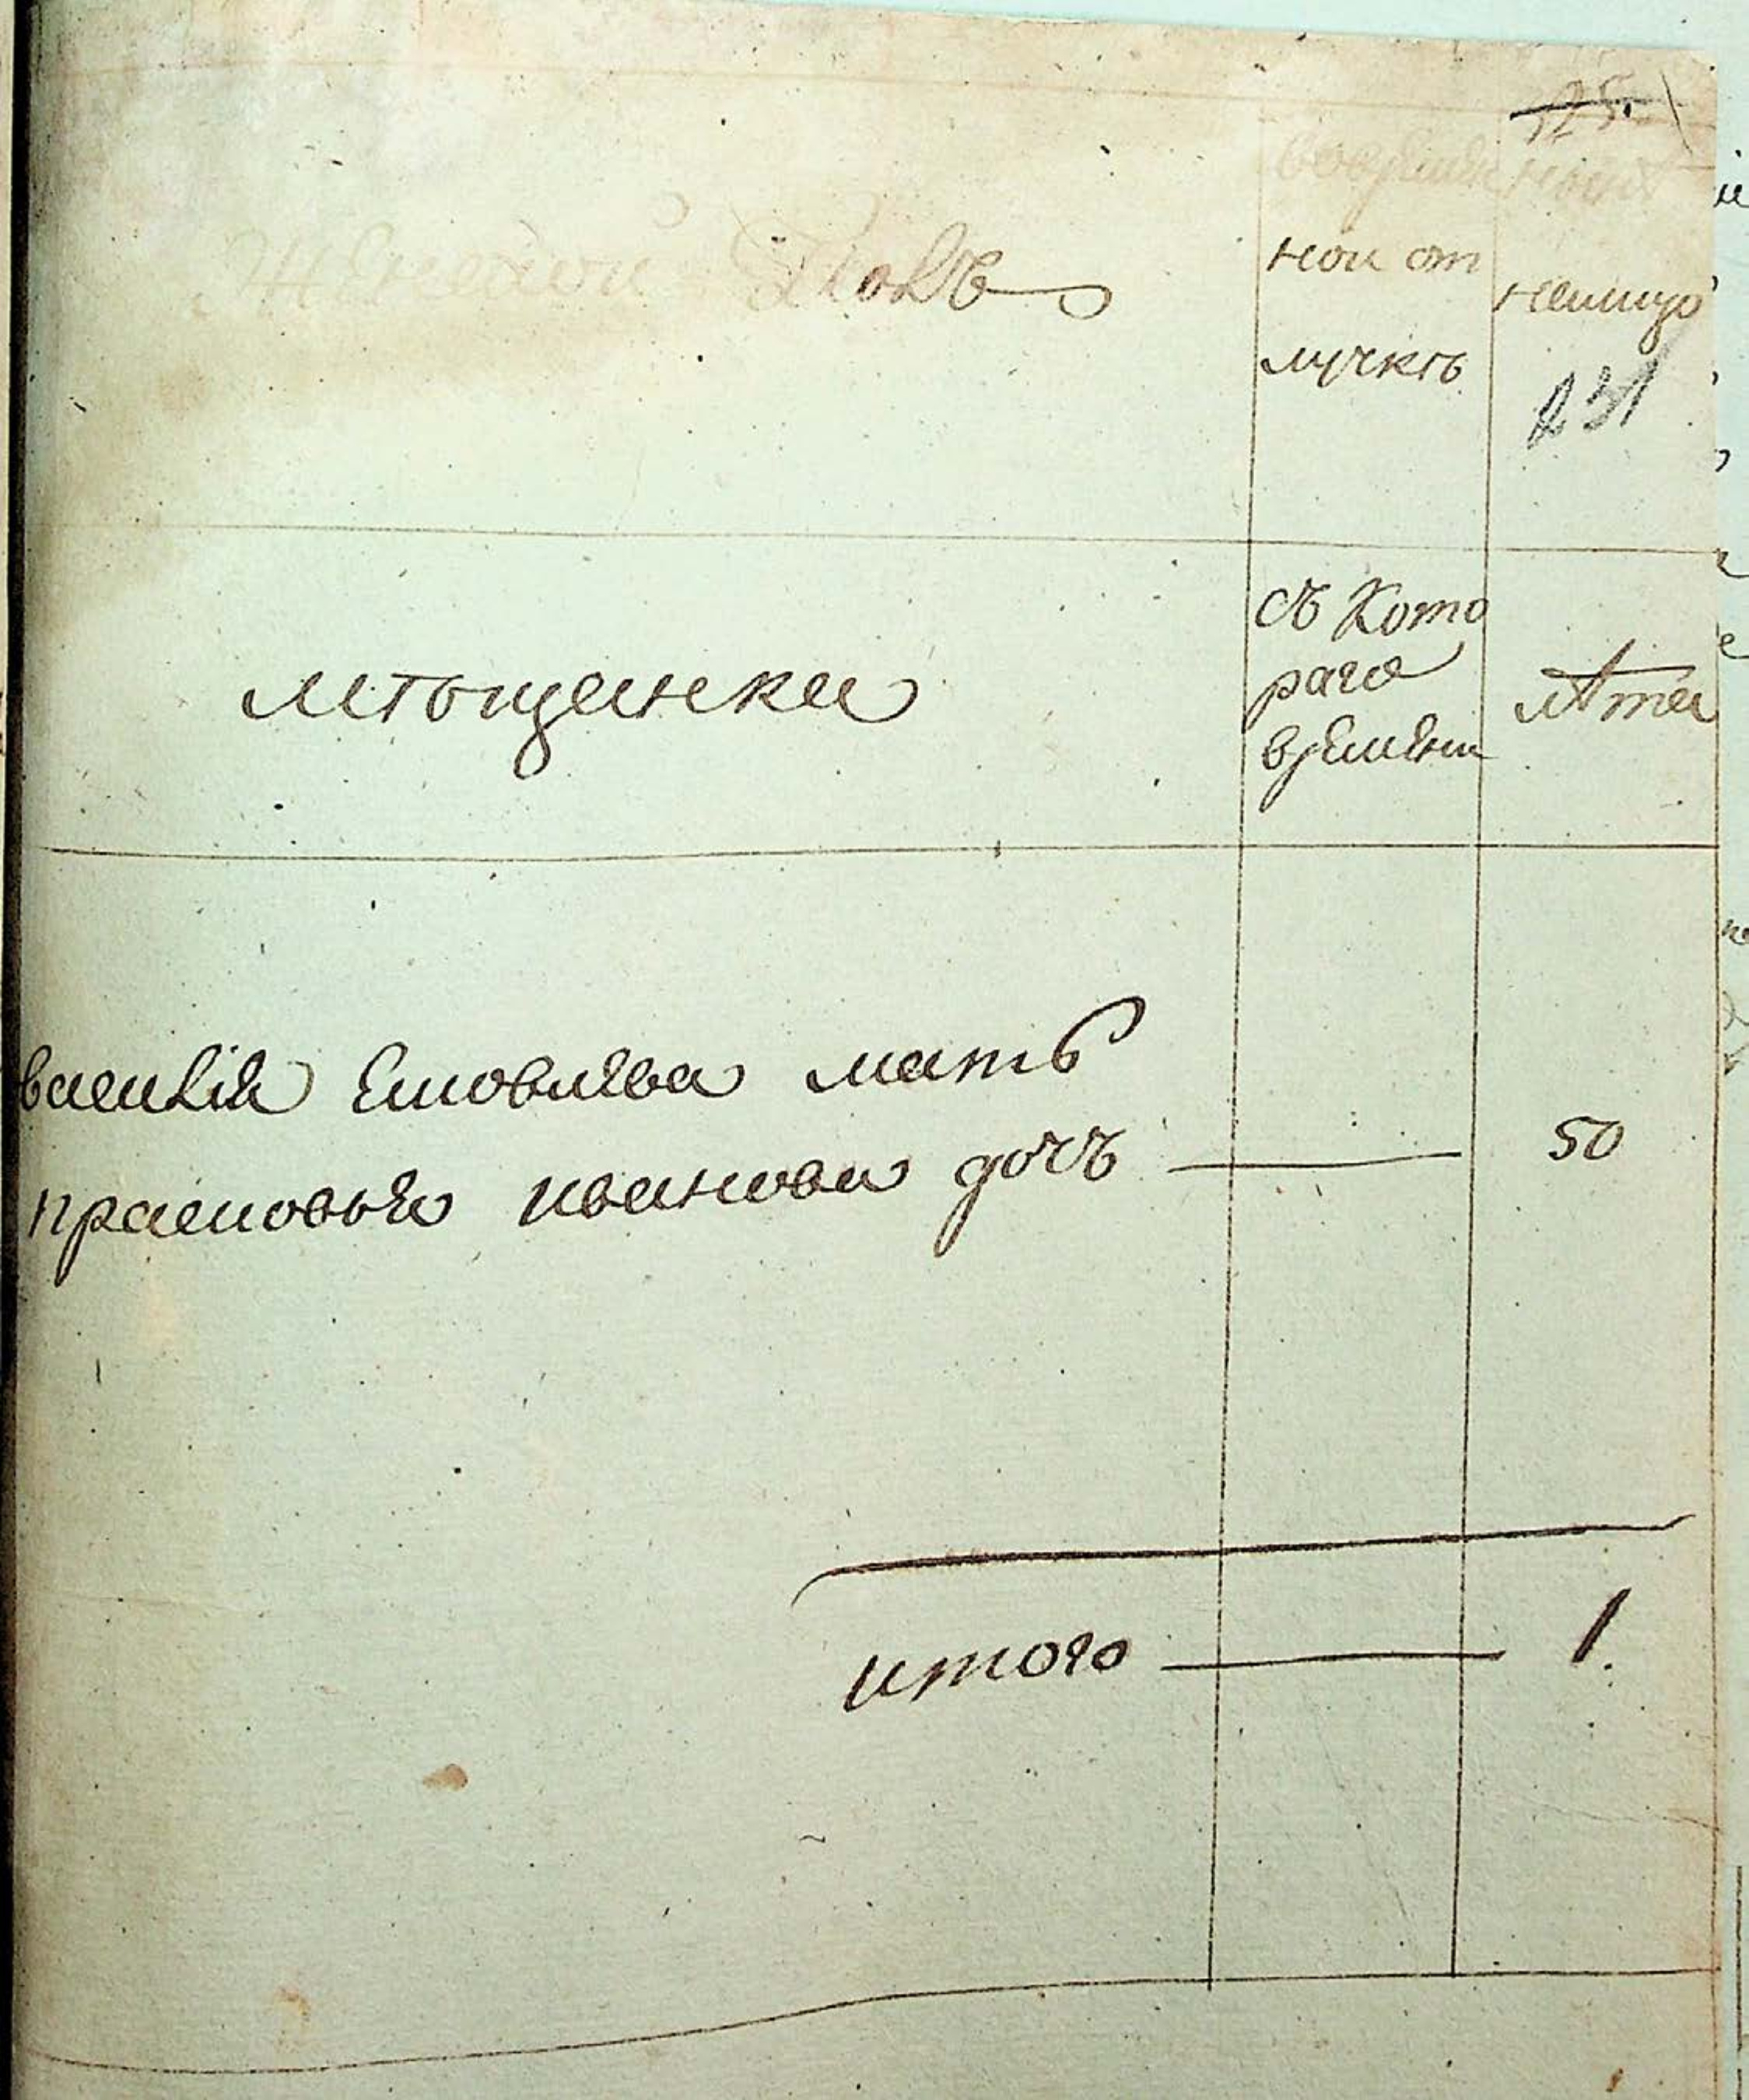 325
Женской полъ
во времен
ной от
лучкѣ
ныне
налицо
231
мѣщанки
съ Кото
раго
времени
лѣта
василия Яковлева мать
прасковья иванова дочь — 50
итого — 1